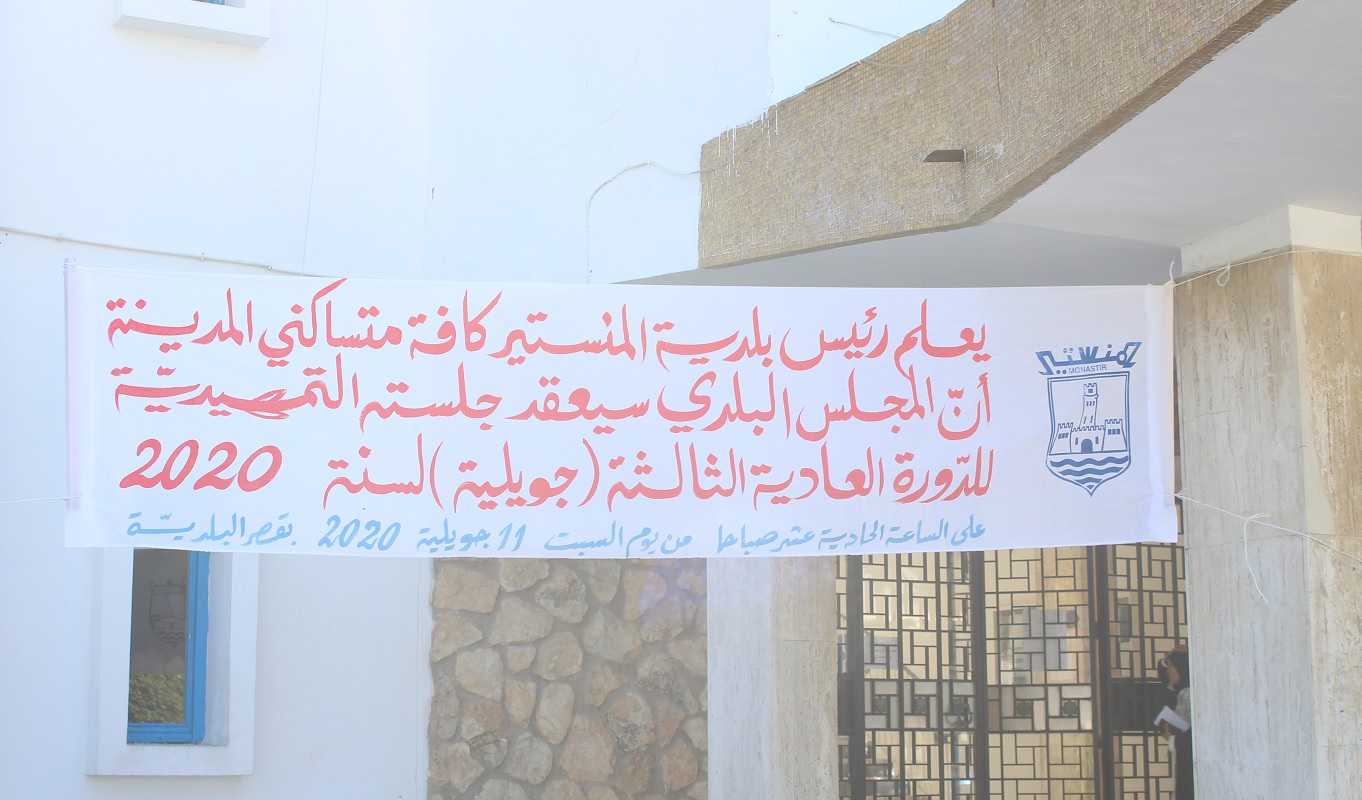 يعلم رئيس بلدية المنستير كافة متساكني المدينة
أنّ المجلس البلدي سيعقد جلسته التمهيديّة
للدّورة العادية الثالثة (جويلية) لسنة 2020
على الساعة الحادية عشر صباحا من يوم السبت 11 جويلية 2020 بقصر البلديّة
المنستير
MONASTIR